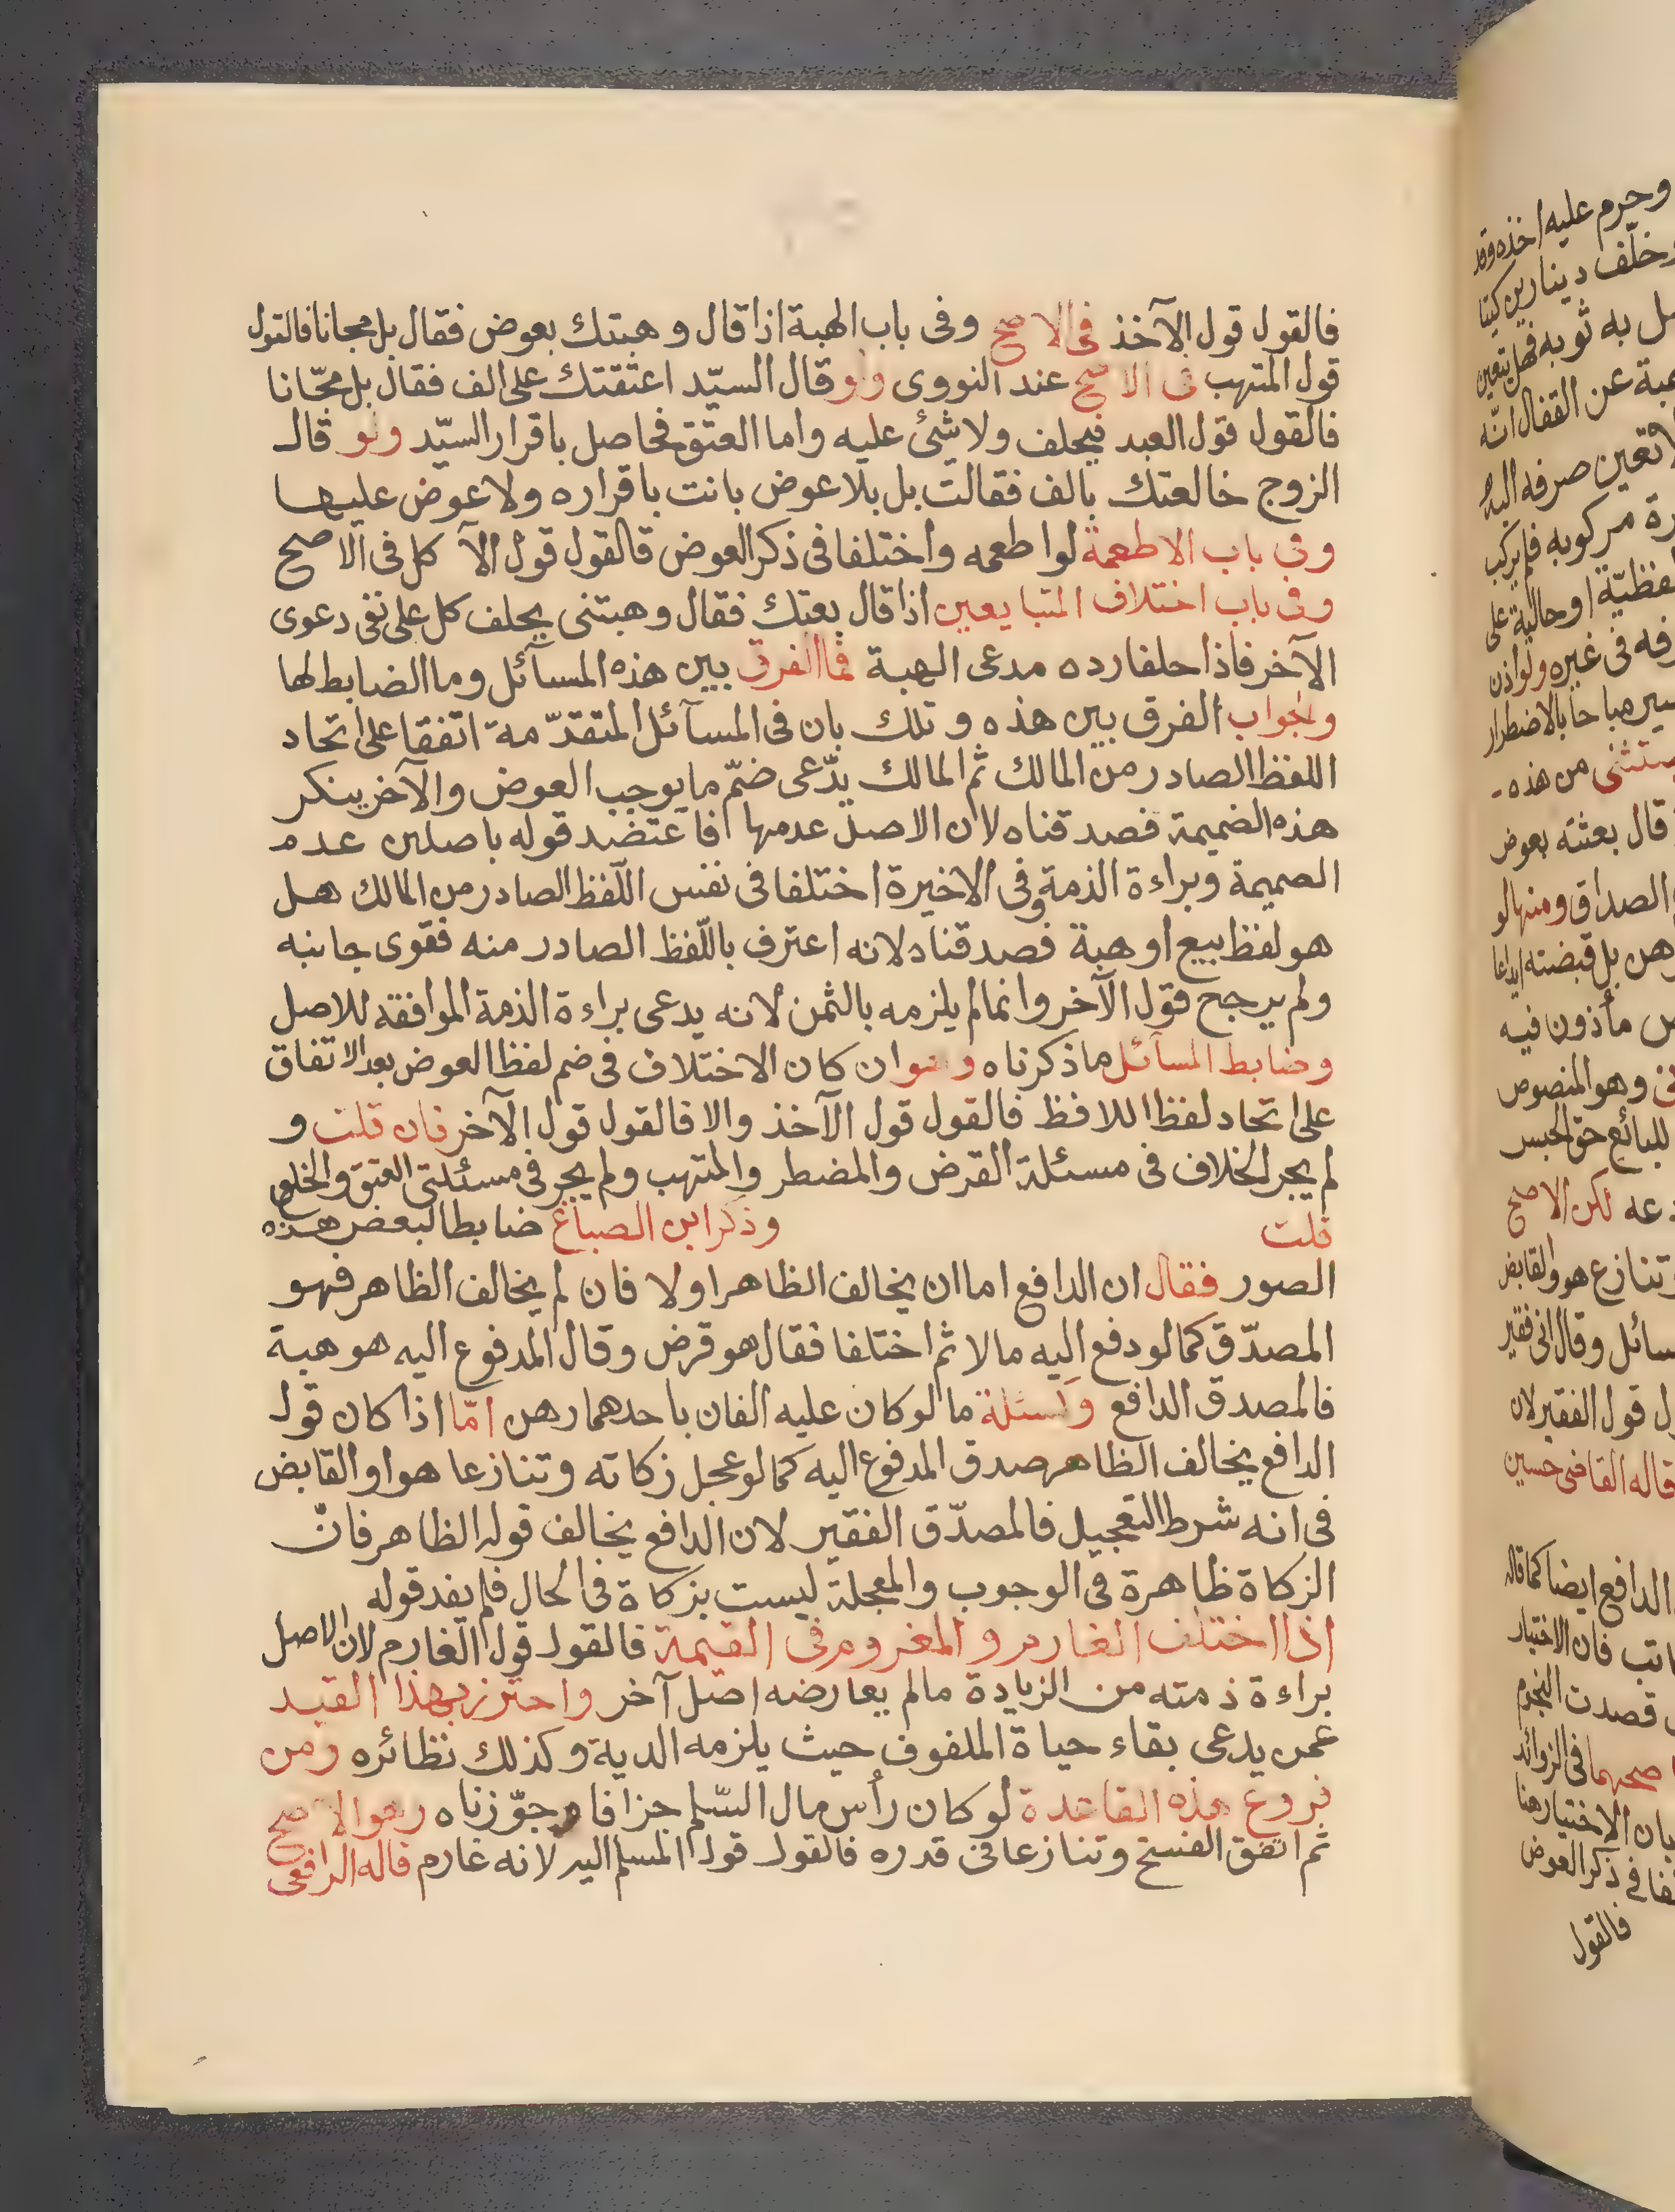 فالقول قول الآخذ فى الاصح وفى باب الهبة اذا قال وهبتك بعوض فقال بل مجانا فالقول
قول المتهب فى الاصح عند النووى ولو قال السيّد اعتقتك على الف فقال بل مجّانا
فالقول قول العبد فيحلف ولا شئ عليه واما العتق فحاصل باقرار السيّد ولو قال
الزوج خالعتك بالف فقالت بل بلا عوض بانت باقراره ولا عوض عليها
وفى باب الاطعمة لو اطعمه واختلفا فى ذكر العوض فالقول قول الآكل فى الاصح
وفى باب اختلاف المتبايعين اذا قال بعتك فقال وهبتنى يحلف كل على نفى دعوى
الآخر فاذا حلفا رده مدعى الهبة فما الفرق بين هذه المسآئل وما الضابط لها
والجواب الفرق بين هذه وتلك بان فى المسآئل المتقدّمة اتفقا على اتحاد
اللفظ الصادر من المالك ثم المالك يدّعى ضمّ ما يوجب العوض والآخر ينكر
هذه الضميمة فصدقناه لان الاصل عدمها فاعتضد قوله باصلين عدم
الصميمة وبراءة الذمة وفى الاخيرة اختلفا فى نفس اللّفظ الصادر من المالك هل
هو لفظ بيع او هبة فصدقناه لانه اعترف باللّفظ الصادر منه فقوى جانبه
ولم يرجح قول الآخر وانما لم يلزمه بالثمن لانه يدعى براءة الذمة الموافقة للاصل
وضابط المسآئل ما ذكرناه وهو ان كان الاختلاف فى ضم لفظ العوض بعد الاتفاق
على اتحاد لفظ اللافظ فالقول قول الآخذ والا فالقول قول الآخر فان قلت و
لم يجر الخلاف فى مسئلة القرض والمضطر والمتهب ولم يجر فى مسئلتى العتق والخلع
قلت وذكر ابن الصباغ ضابطا لبعض هذه
الصور فقال ان الدافع اما ان يخالف الظاهر اولا فان لم يخالف الظاهر فهو
المصدّق كما لو دفع اليه مالا ثم اختلفا فقال هو قرض وقال المدفوع اليه هو هبة
فالمصدق الدافع ولمسئلة ما لو كان عليه الفان باحدهما رهن امّا اذا كان قول
الدافع يخالف الظاهر صدق المدفوع اليه كما لو عجل زكاته وتنازعا هو او القابض
فى انه شرط التعجيل فالمصدّق الفقير لان الدافع يخالف قوله الظاهر فانّ
الزكاة ظاهرة فى الوجوب والمعجلة ليست بزكاة فى الحال فلم يفد قوله
اذا اختلف الغارم والمغروم فى القيمة فالقول قول الغارم لان الاصل
براءة ذمته من الزيادة مالم يعارضه اصل آخر واحترز بهذا القيد
عمن يدعى بقاء حياة الملفوف حيث يلزمه الدية وكذلك نظائره ومن
فروع هذه القاعدة لو كان رأس مال السّلم جزافا وجوّزناه وهو الاصح
ثم اتفق الفسخ وتنازعا فى قدره فالقول قول المسلم اليه لانه غارم قاله الرافعى
وحرم عليه اخذه وقد
وخلّف دينارين كيتا
به ثوبه فهل يتعين
عن القفال انّه
صرفه اليه
مركوبه فلم يركب
او حالية على
فى غيره ولو اذن
مباحا بالاضطرار
من هذه
قال بعثته بعوض
الصداق ومنها لو
بل قبضته ايداعا
مأذون فيه
وهو المنصوص
للبائع حق الحبس
لكن الاصح
وتنازع هو والقابض
وقال انى فقير
قول الفقير لان
قاله القاضى حسين
الدافع ايضا كما قاله
فان الاختيار
قصدت النجوم
فى الزوائد
بان الاختيار هنا
فى ذكر العوض
فالقول